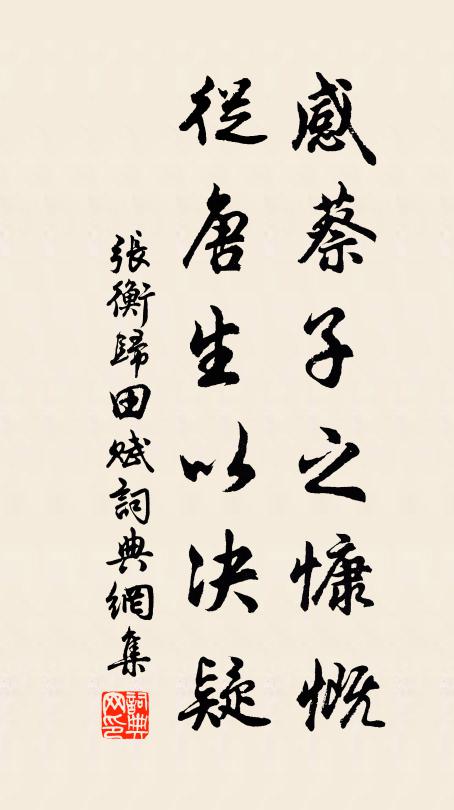 感蔡子之慷慨
從唐生以决疑
張衡歸田賦詞典網集
詞典網印